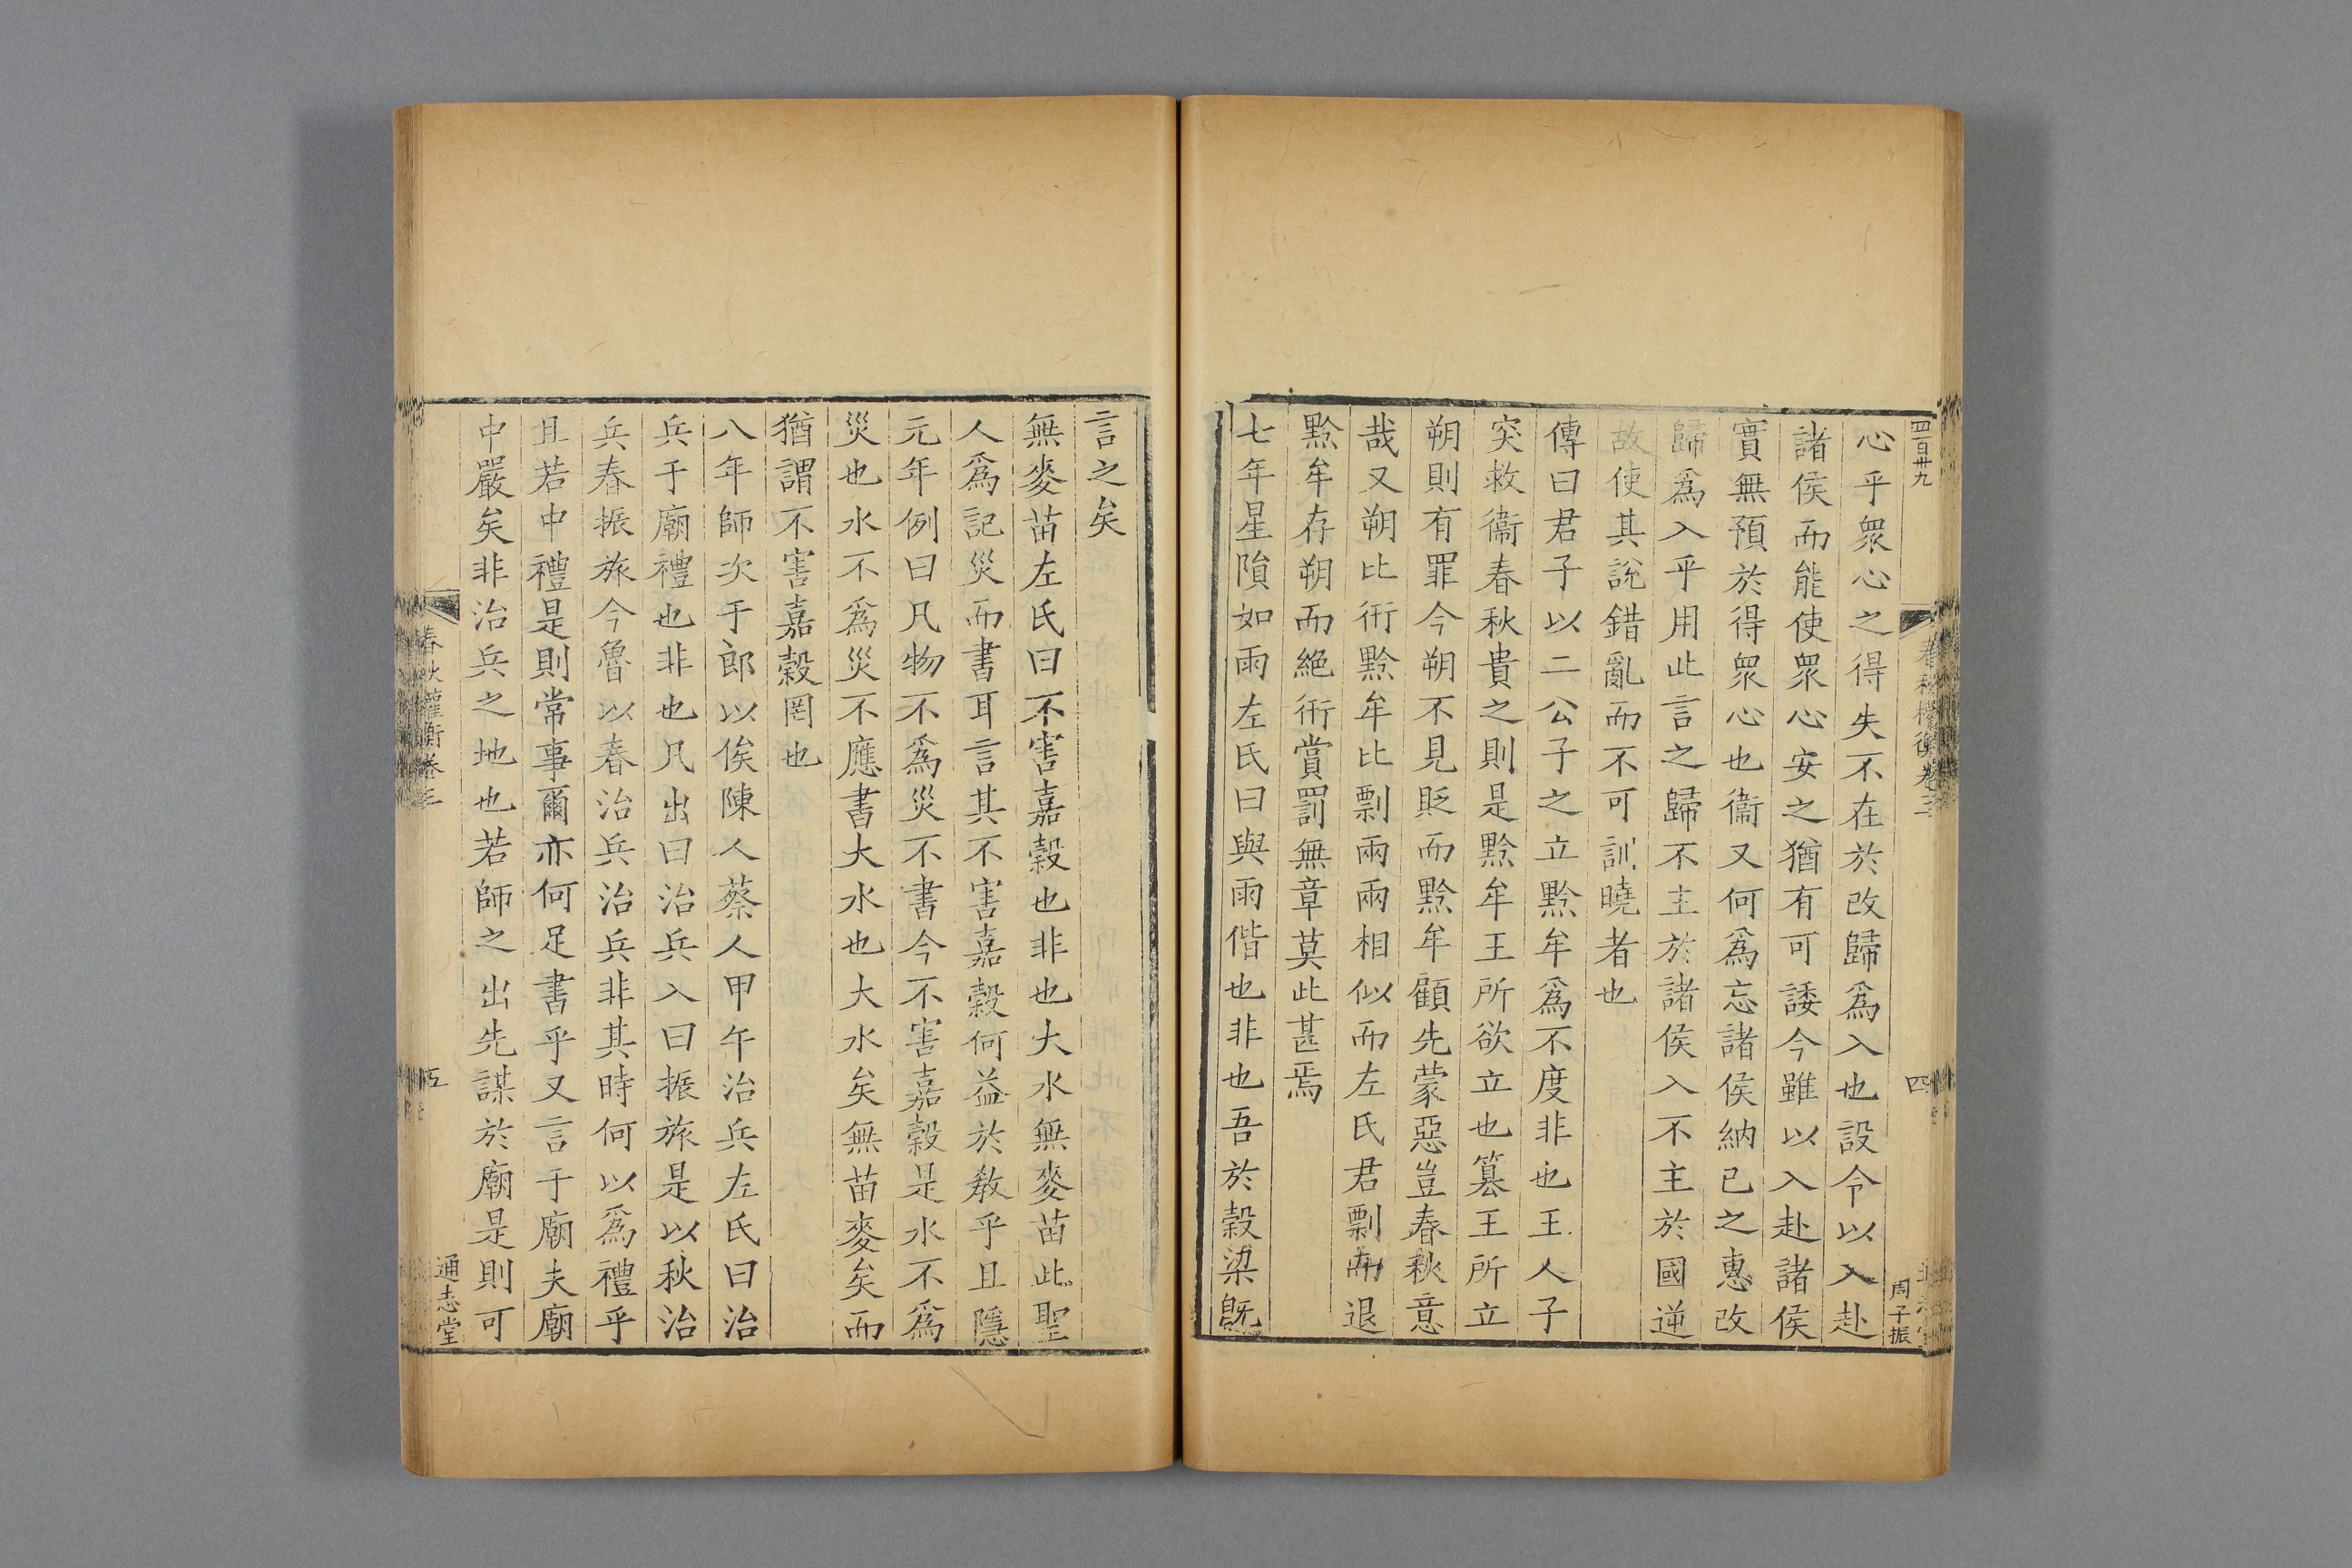 四百卅九
春秋權衡卷三
四
周子振
心乎衆心之得失不在於改歸爲入也設令以入赴
諸侯而能使衆心安之猶有可諉今雖以入赴諸侯
實無預於得衆心也衞又何爲忘諸侯納已之惠改
歸爲入乎用此言之歸不主於諸侯入不主於國逆
故使其說錯亂而不可訓曉者也
傳曰君子以二公子之立黔牟爲不度非也王人子
突救衞春秋貴之則是黔牟王所欲立也簒王所立
朔則有罪今朔不見貶而黔牟顧先蒙惡豈春秋意
哉又朔比衎黔牟比剽兩兩相似而左氏君剽而退
黔牟存朔而絕衎賞罰無章莫此甚焉
七年星隕如雨左氏曰與雨偕也非也吾於穀梁旣
言之矣
無麥苗左氏曰不害嘉穀也非也大水無麥苗此聖
人爲記災而書耳言其不害嘉穀何益於敎乎且隱
元年例曰凡物不爲災不書今不害嘉穀是水不爲
災也水不爲災不應書大水也大水矣無苗麥矣而
猶謂不害嘉穀罔也
八年師次于郎以俟陳人蔡人甲午治兵左氏曰治
兵于廟禮也非也凡出曰治兵入曰振旅是以秋治
兵春振旅今魯以春治兵治兵非其時何以爲禮乎
且若中禮是則常事爾亦何足書乎又言于廟夫廟
中嚴矣非治兵之地也若師之出先謀於廟是則可
春秋權衡卷三
五
通志堂